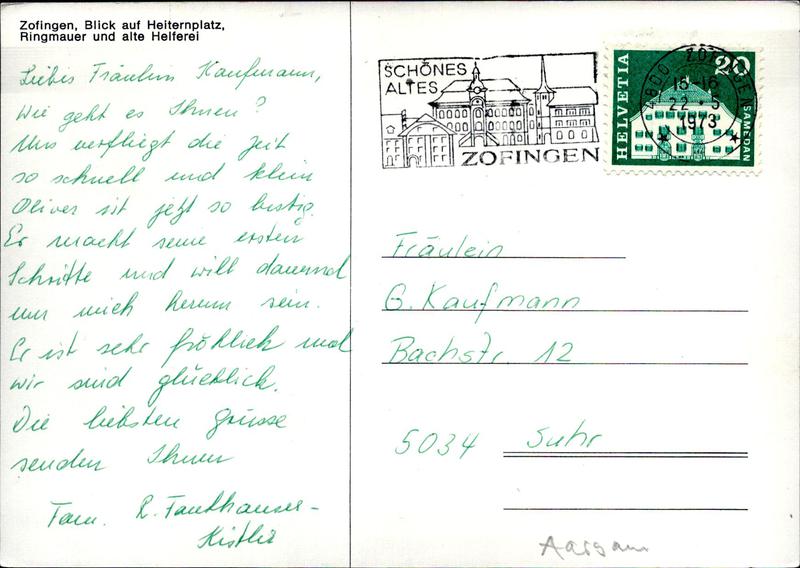 Zofingen, Blick auf Heiternplatz,
Ringmauer und alte Helferei
Liebis Fräulein Kaufmann,
Wie geht es Ihnen?
Uns verfliegt die Zeit
so schnell und klein
Oliver ist jetzt so lustig.
Er macht seine ersten
Schritte und will dauernd
um mich herum sein.
Er ist sehr fröhlich und
wir sind glücklich.
Die liebsten Grüsse
senden Ihnen
Fam. R. Fankhauser-
Kistler
SCHÖNES
ALTES
ZOFINGEN
4800 ZOFINGEN
15-16
22.-5
1973
HELVETIA
20
SAMEDAN
Fräulein
G. Kaufmann
Bachstr. 12
5034 Suhr
Aargau